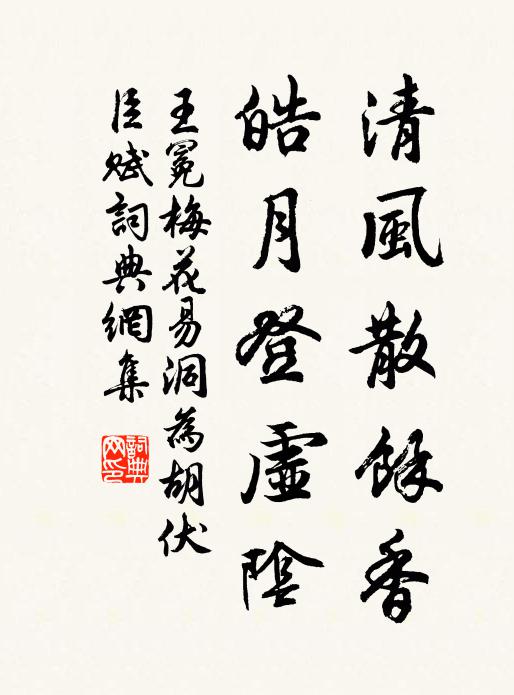 清風散餘香
皓月登虛陰
王冕梅花易洞為胡伏
臣賦詞典網集
詞典网印